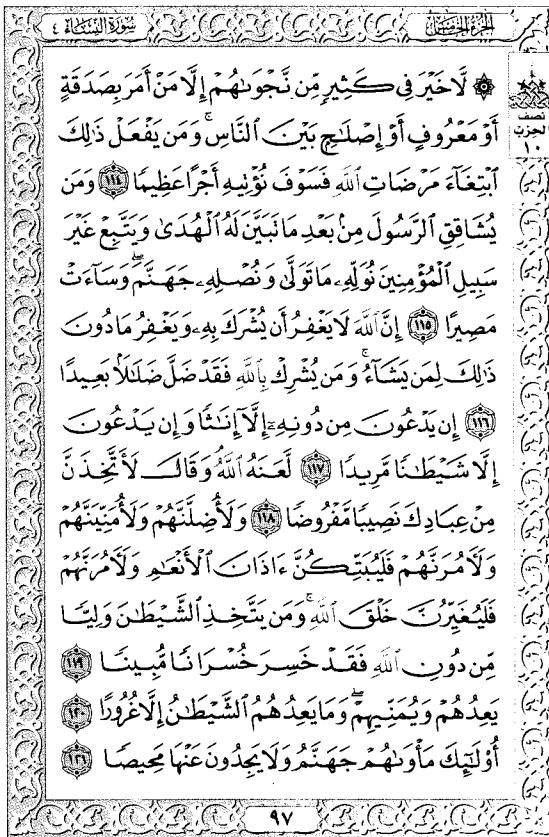 سورة النساء ٤
الجزء الخامس
۞ لَّا خَيْرَ فِي كَثِيرٍ مِّن نَّجْوَىٰهُمْ إِلَّا مَنْ أَمَرَ بِصَدَقَةٍ
أَوْ مَعْرُوفٍ أَوْ إِصْلَٰحٍ بَيْنَ النَّاسِ ۚ وَمَن يَفْعَلْ ذَٰلِكَ
ابْتِغَآءَ مَرْضَاتِ اللَّهِ فَسَوْفَ نُؤْتِيهِ أَجْرًا عَظِيمًا ١١٤ وَمَن
يُشَاقِقِ الرَّسُولَ مِنۢ بَعْدِ مَا تَبَيَّنَ لَهُ الْهُدَىٰ وَيَتَّبِعْ غَيْرَ
سَبِيلِ الْمُؤْمِنِينَ نُوَلِّهِۦ مَا تَوَلَّىٰ وَنُصْلِهِۦ جَهَنَّمَ ۖ وَسَآءَتْ
مَصِيرًا ١١٥ إِنَّ اللَّهَ لَا يَغْفِرُ أَن يُشْرَكَ بِهِۦ وَيَغْفِرُ مَا دُونَ
ذَٰلِكَ لِمَن يَشَآءُ ۚ وَمَن يُشْرِكْ بِاللَّهِ فَقَدْ ضَلَّ ضَلَٰلًۢا بَعِيدًا
١١٦ إِن يَدْعُونَ مِن دُونِهِۦٓ إِلَّآ إِنَٰثًا وَإِن يَدْعُونَ
إِلَّا شَيْطَٰنًا مَّرِيدًا ١١٧ لَّعَنَهُ اللَّهُ ۘ وَقَالَ لَأَتَّخِذَنَّ
مِنْ عِبَادِكَ نَصِيبًا مَّفْرُوضًا ١١٨ وَلَأُضِلَّنَّهُمْ وَلَأُمَنِّيَنَّهُمْ
وَلَءَامُرَنَّهُمْ فَلَيُبَتِّكُنَّ ءَاذَانَ الْأَنْعَٰمِ وَلَءَامُرَنَّهُمْ
فَلَيُغَيِّرُنَّ خَلْقَ اللَّهِ ۚ وَمَن يَتَّخِذِ الشَّيْطَٰنَ وَلِيًّا
مِّن دُونِ اللَّهِ فَقَدْ خَسِرَ خُسْرَانًا مُّبِينًا ١١٩
يَعِدُهُمْ وَيُمَنِّيهِمْ ۖ وَمَا يَعِدُهُمُ الشَّيْطَٰنُ إِلَّا غُرُورًا ١٢٠
أُولَٰٓئِكَ مَأْوَىٰهُمْ جَهَنَّمُ وَلَا يَجِدُونَ عَنْهَا مَحِيصًا ١٢١
نصف
الحزب
١٠
٩٧